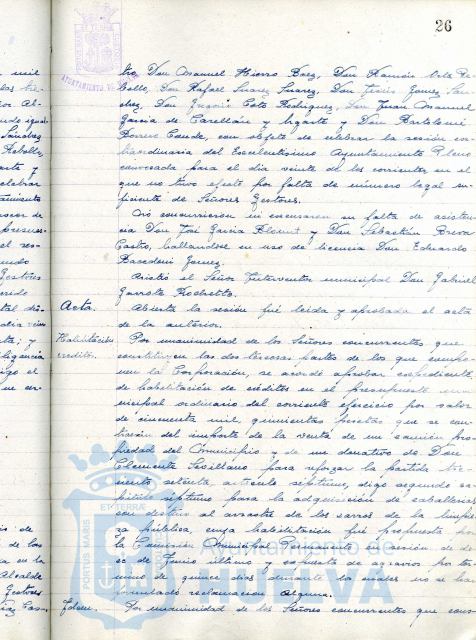 26
tro, Don Manuel Hierro Baez, Don Ramón Vela Re
bollo, Don Rafael Suarez Suarez, Don Jesús Gomez Sán
chez, Don Ignacio Cots Rodriguez, Don Juan Manuel
García de Carellán y Ugarte y Don Bartolomé
Borrero Conde, con objeto de celebrar la sesión ex
traordinaria del Excelentísimo Ayuntamiento Pleno
convocada para el día veinte de los corrientes en el
que no tuvo efecto por falta de número legal su
ficiente de Señores Gestores.
No concurrieron ni excusaron su falta de asisten
cia Don José García y Don Sebastián
Castro, hallándose en uso de licencia Don Eduardo
Gomez.
Asistió el Señor Interventor municipal Don Gabriel
Garrote
Acta. Abierta la sesión fué leida y aprobada el acta
de la anterior.
Habilitación Por unanimidad de los Señores concurrentes que
credito. constituyen las dos terceras partes de los que compo
nen la Corporación, se acordó aprobar expediente
de habilitación de créditos en el presupuesto mu
nicipal ordinario del corriente ejercicio por valor
de cincuenta mil quinientas pesetas que se con
traen del importe de la venta de un camión pro
piedad del Municipio y de un donativo de Don
Clemente Sevillano para reforzar la partida tres
cienta setenta, artículo séptimo, digo segundo ca
pítulo séptimo para la adquisición de caballerías
con destino al arrastre de los carros de la limpie
za pública cuya habilitación fué propuesta por
la Comisión Municipal Permanente en sesión de do
ce de Junio último y expuesta de agravios por tér
mino de quince días durante los cuales no se ha
formulado reclamación alguna.
Idem. Por unanimidad de los Señores concurrentes que cons
PORTUS MARIS
ET TERRÆ
Ayuntamiento de
HUELVA